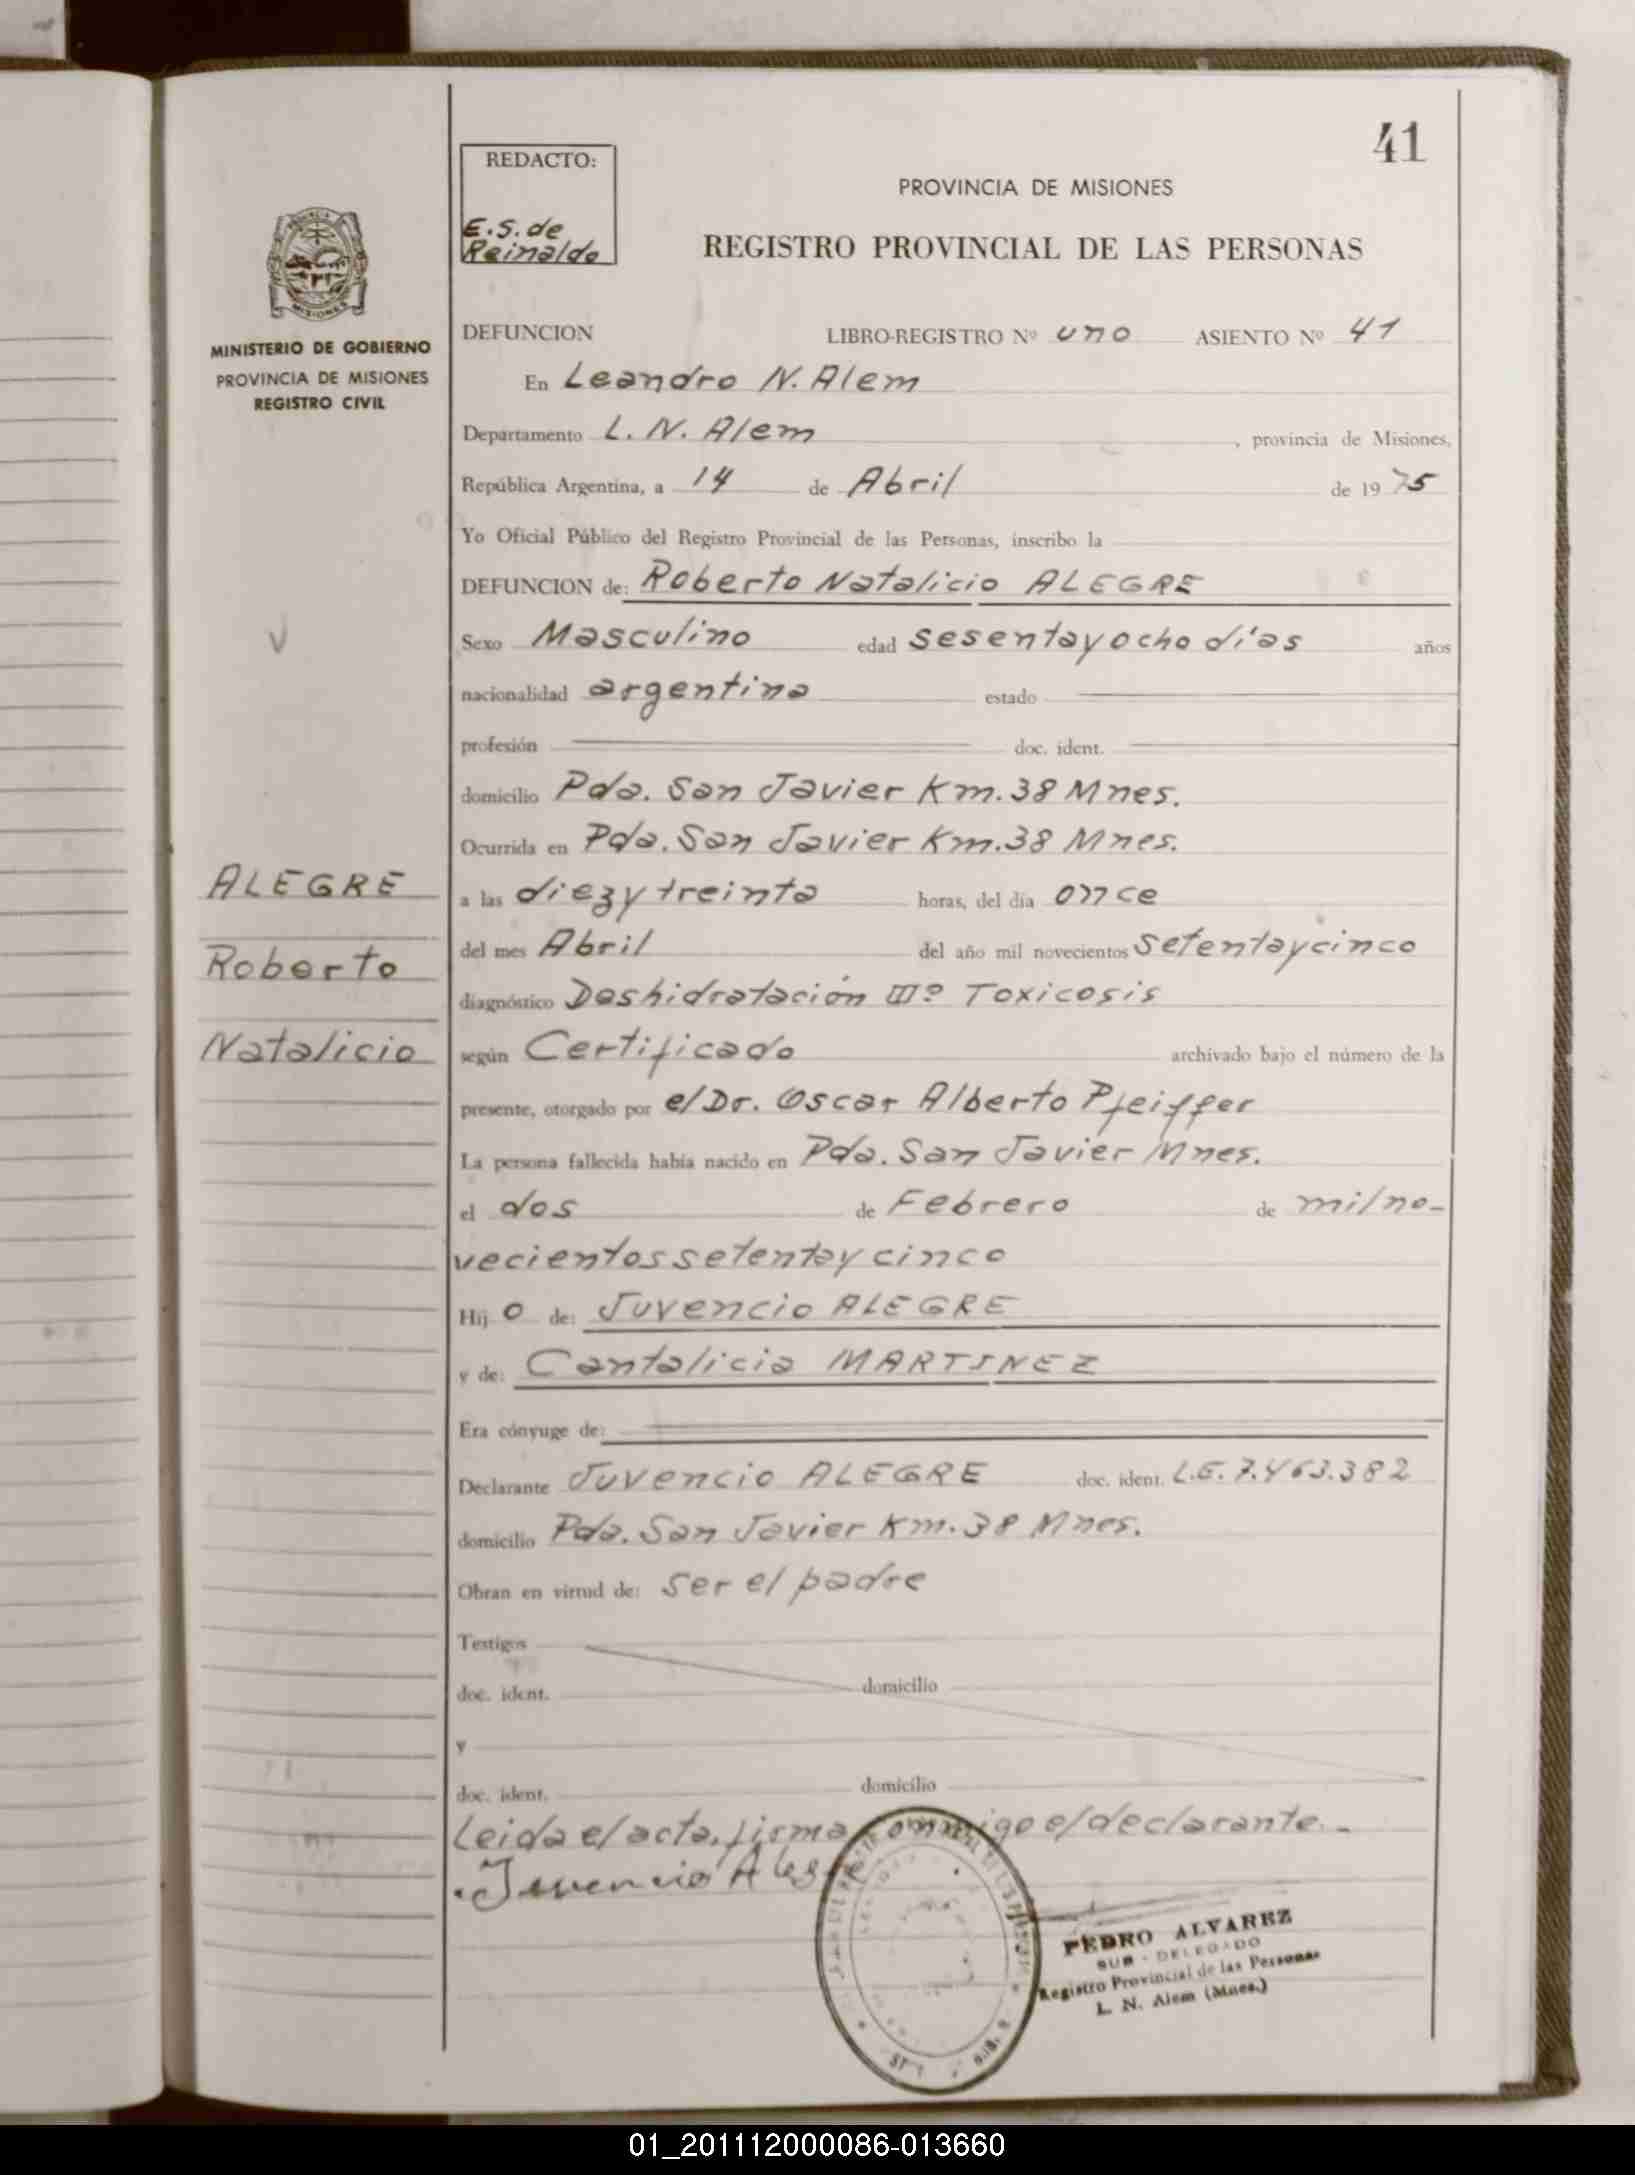 41
REDACTO:
E.S. de
Reinaldo
PROVINCIA DE MISIONES
REGISTRO PROVINCIAL DE LAS PERSONAS
MINISTERIO DE GOBIERNO
PROVINCIA DE MISIONES
REGISTRO CIVIL
DEFUNCION LIBRO-REGISTRO Nº uno ASIENTO Nº 41
En Leandro N. Alem
Departamento L. N. Alem, provincia de Misiones,
República Argentina, a 14 de Abril de 1975
Yo Oficial Público del Registro Provincial de las Personas, inscribo la
DEFUNCION de: Roberto Natalicio ALEGRE
Sexo Masculino edad sesenta y ocho días años
nacionalidad argentina estado
profesión doc. ident.
domicilio Pda. San Javier Km. 38 Mnes.
Ocurrida en Pda. San Javier Km. 38 Mnes.
ALEGRE
Roberto
Natalicio
a las diez y treinta horas, del día once
del mes Abril del año mil novecientos setenta y cinco
diagnóstico Deshidratación IIIº Toxicosis
según Certificado archivado bajo el número de la
presente, otorgado por el Dr. Oscar Alberto Pfeiffer
La persona fallecida había nacido en Pda. San Javier Mnes.
el dos de Febrero de mil no-
vecientos setenta y cinco
Hijo de: Juvencio ALEGRE
y de: Cantalicia MARTINEZ
Era cónyuge de:
Declarante Juvencio ALEGRE doc. ident. L.E. 7.463.382
domicilio Pda. San Javier Km. 38 Mnes.
Obran en virtud de: ser el padre
Testigos
doc. ident. domicilio
y
doc. ident. domicilio
Leida el acta, firma conmigo el declarante.-
Juvencio Alegre
PEDRO ALVAREZ
SUB-DELEGADO
Registro Provincial de las Personas
L. N. Alem (Mnes.)
01_201112000086-013660